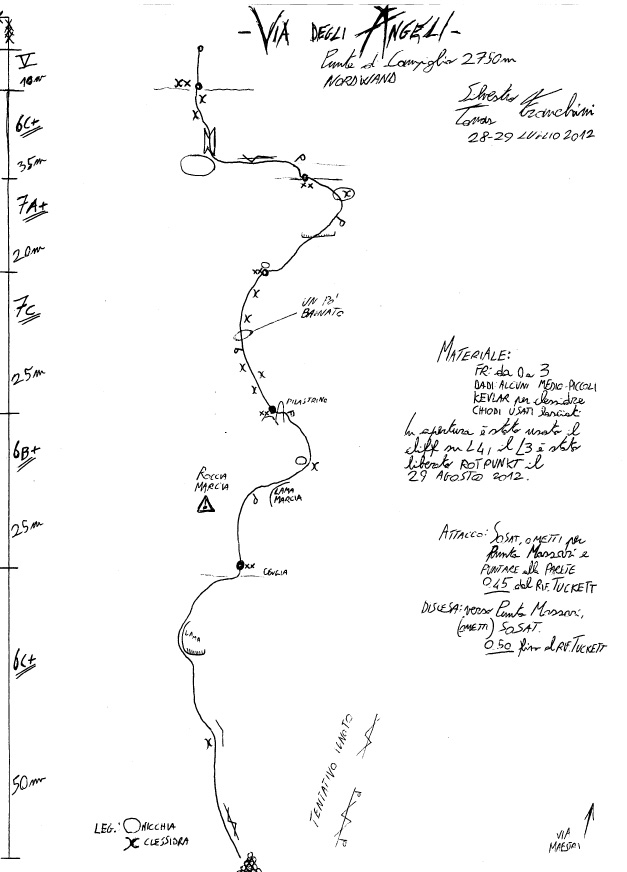 - VIA DEGLI ANGELI -
Punte di Campiglio 2750m
NORDWAND
Silvestro
Tomas Franchini
28-29 LUGLIO 2012
V
10m
6C+
35m
7A+
20m
7C
25m
6B+
25m
6C+
50m
XX
XX
XX
UN PO'
BAGNATO
PILASTRINO
XX
ROCCIA
MARCIA
LAMA
MARCIA
XX
CENGIA
LAMA
MATERIALE:
FR: da 0 a 3
DADI ALCUNI MEDIO-PICCOLI
KEVLAR per clessidre
CHIODI USATI lasciati
In apertura è stato usato il
cliff su L4, il L3 è stato
liberato ROTPUNKT il
29 AGOSTO 2012.
ATTACCO: SOSAT, OMETTI per
Punta Massari e
PUNTARE alla PARETE
0.45 dal RIF. TUCKETT
DISCESA: verso Punta Massari,
(OMETTI) SOSAT.
0.50 fino al RIF. TUCKETT
TENTATIVO IGNOTO
LEG.: NICCHIA
X CLESSIDRA
VIA
MAESTRI